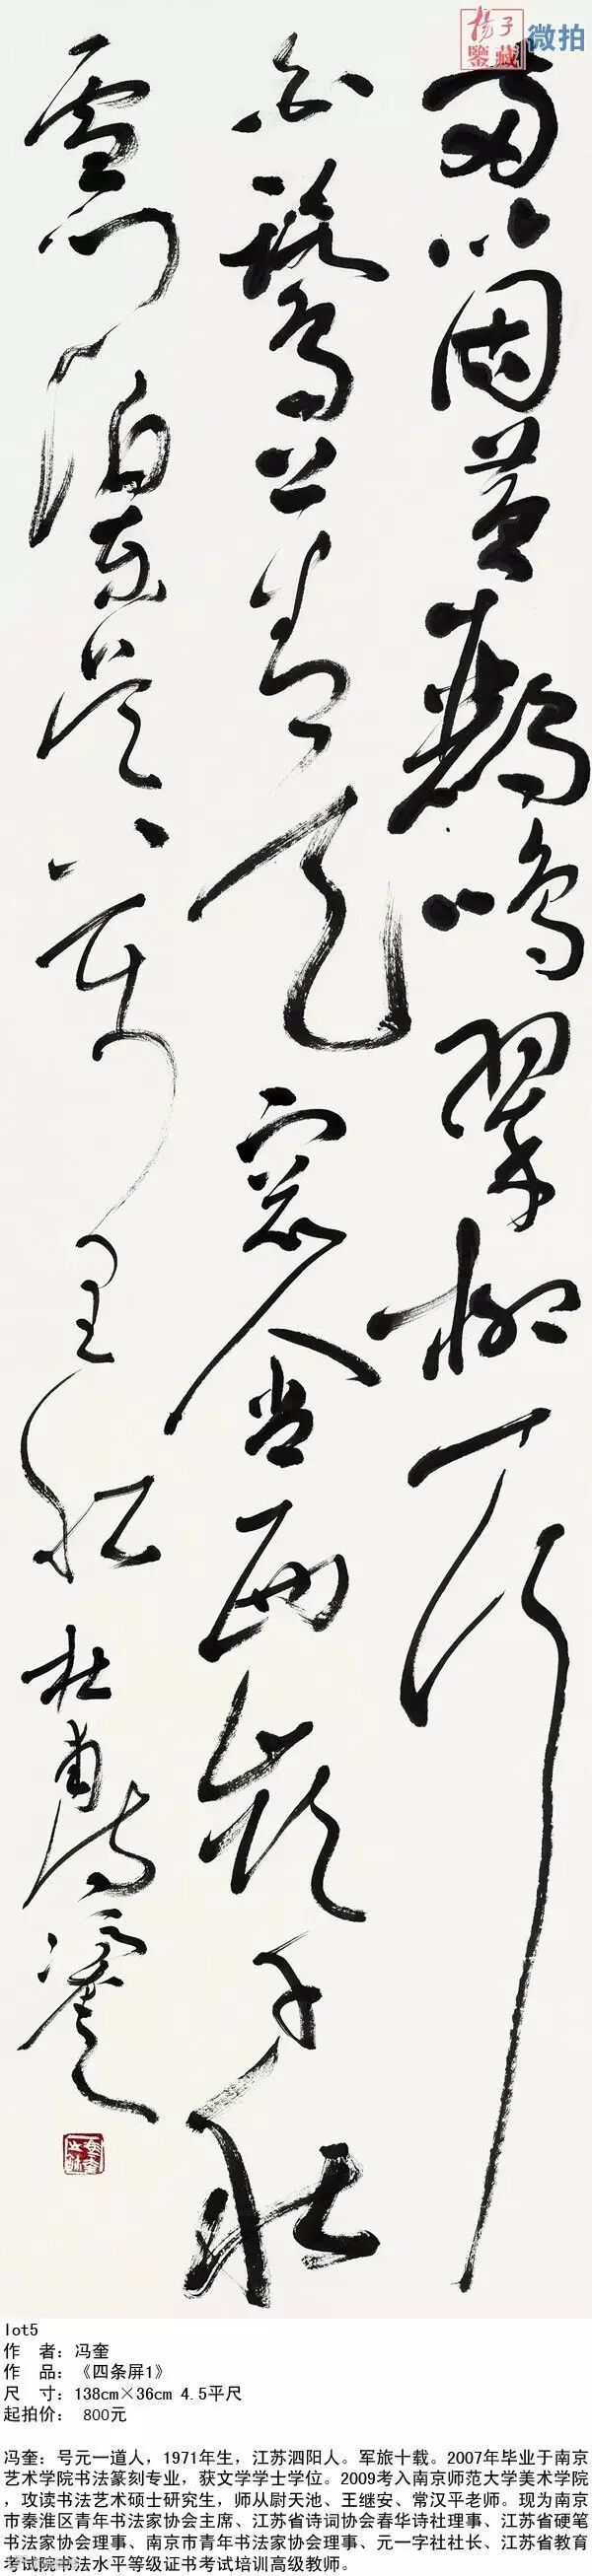 楊子
鑒藏
微拍
兩箇黃鸝鳴翠柳一行
白鷺上青天窗含西嶺千秋
雪門泊東吳萬里船 杜甫詩 馮奎
lot5
作　者：冯奎
作　品：《四条屏1》
尺　寸：138cm×36cm 4.5平尺
起拍价： 800元
冯奎：号元一道人，1971年生，江苏泗阳人。军旅十载。2007年毕业于南京
艺术学院书法篆刻专业，获文学学士学位。2009考入南京师范大学美术学院
，攻读书法艺术硕士研究生，师从尉天池、王继安、常汉平老师。现为南京
市秦淮区青年书法家协会主席、江苏省诗词协会春华诗社理事、江苏省硬笔
书法家协会理事、南京市青年书法家协会理事、元一字社社长、江苏省教育
考试院书法水平等级证书考试培训高级教师。